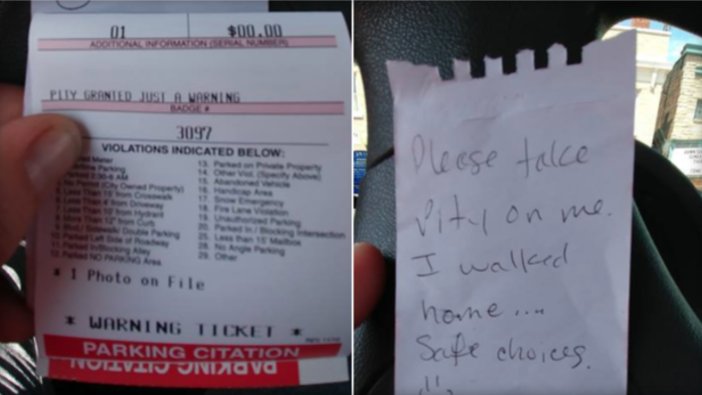 01 $00.00
ADDITIONAL INFORMATION (SERIAL NUMBER)
PITY GRANTED JUST A WARNING
BADGE #
3097
VIOLATIONS INDICATED BELOW:
Meter
Parking
2:30-6 AM
No Permit (City Owned Property)
Less Than 15' from Crosswalk
Less Than 4' from Driveway
Less Than 10' from Hydrant
More Than 12" from Curb
Blvd./ Sidewalk/ Double Parking
10. Parked Left Side of Roadway
11. Parked In/Blocking Alley
12. Parked NO PARKING Area
13. Parked on Private Property
14. Other Viol. (Specify Above)
15. Abandoned Vehicle
16. Handicap Area
17. Snow Emergency
18. Fire Lane Violation
19. Unauthorized Parking
20. Parked In / Blocking Intersection
25. Less than 15' Mailbox
28. No Angle Parking
29. Other
* 1 Photo on File
* WARNING TICKET *
PARKING CITATION
PARKING CITATION
Please take
Pity on me.
I walked
home....
Safe choices.